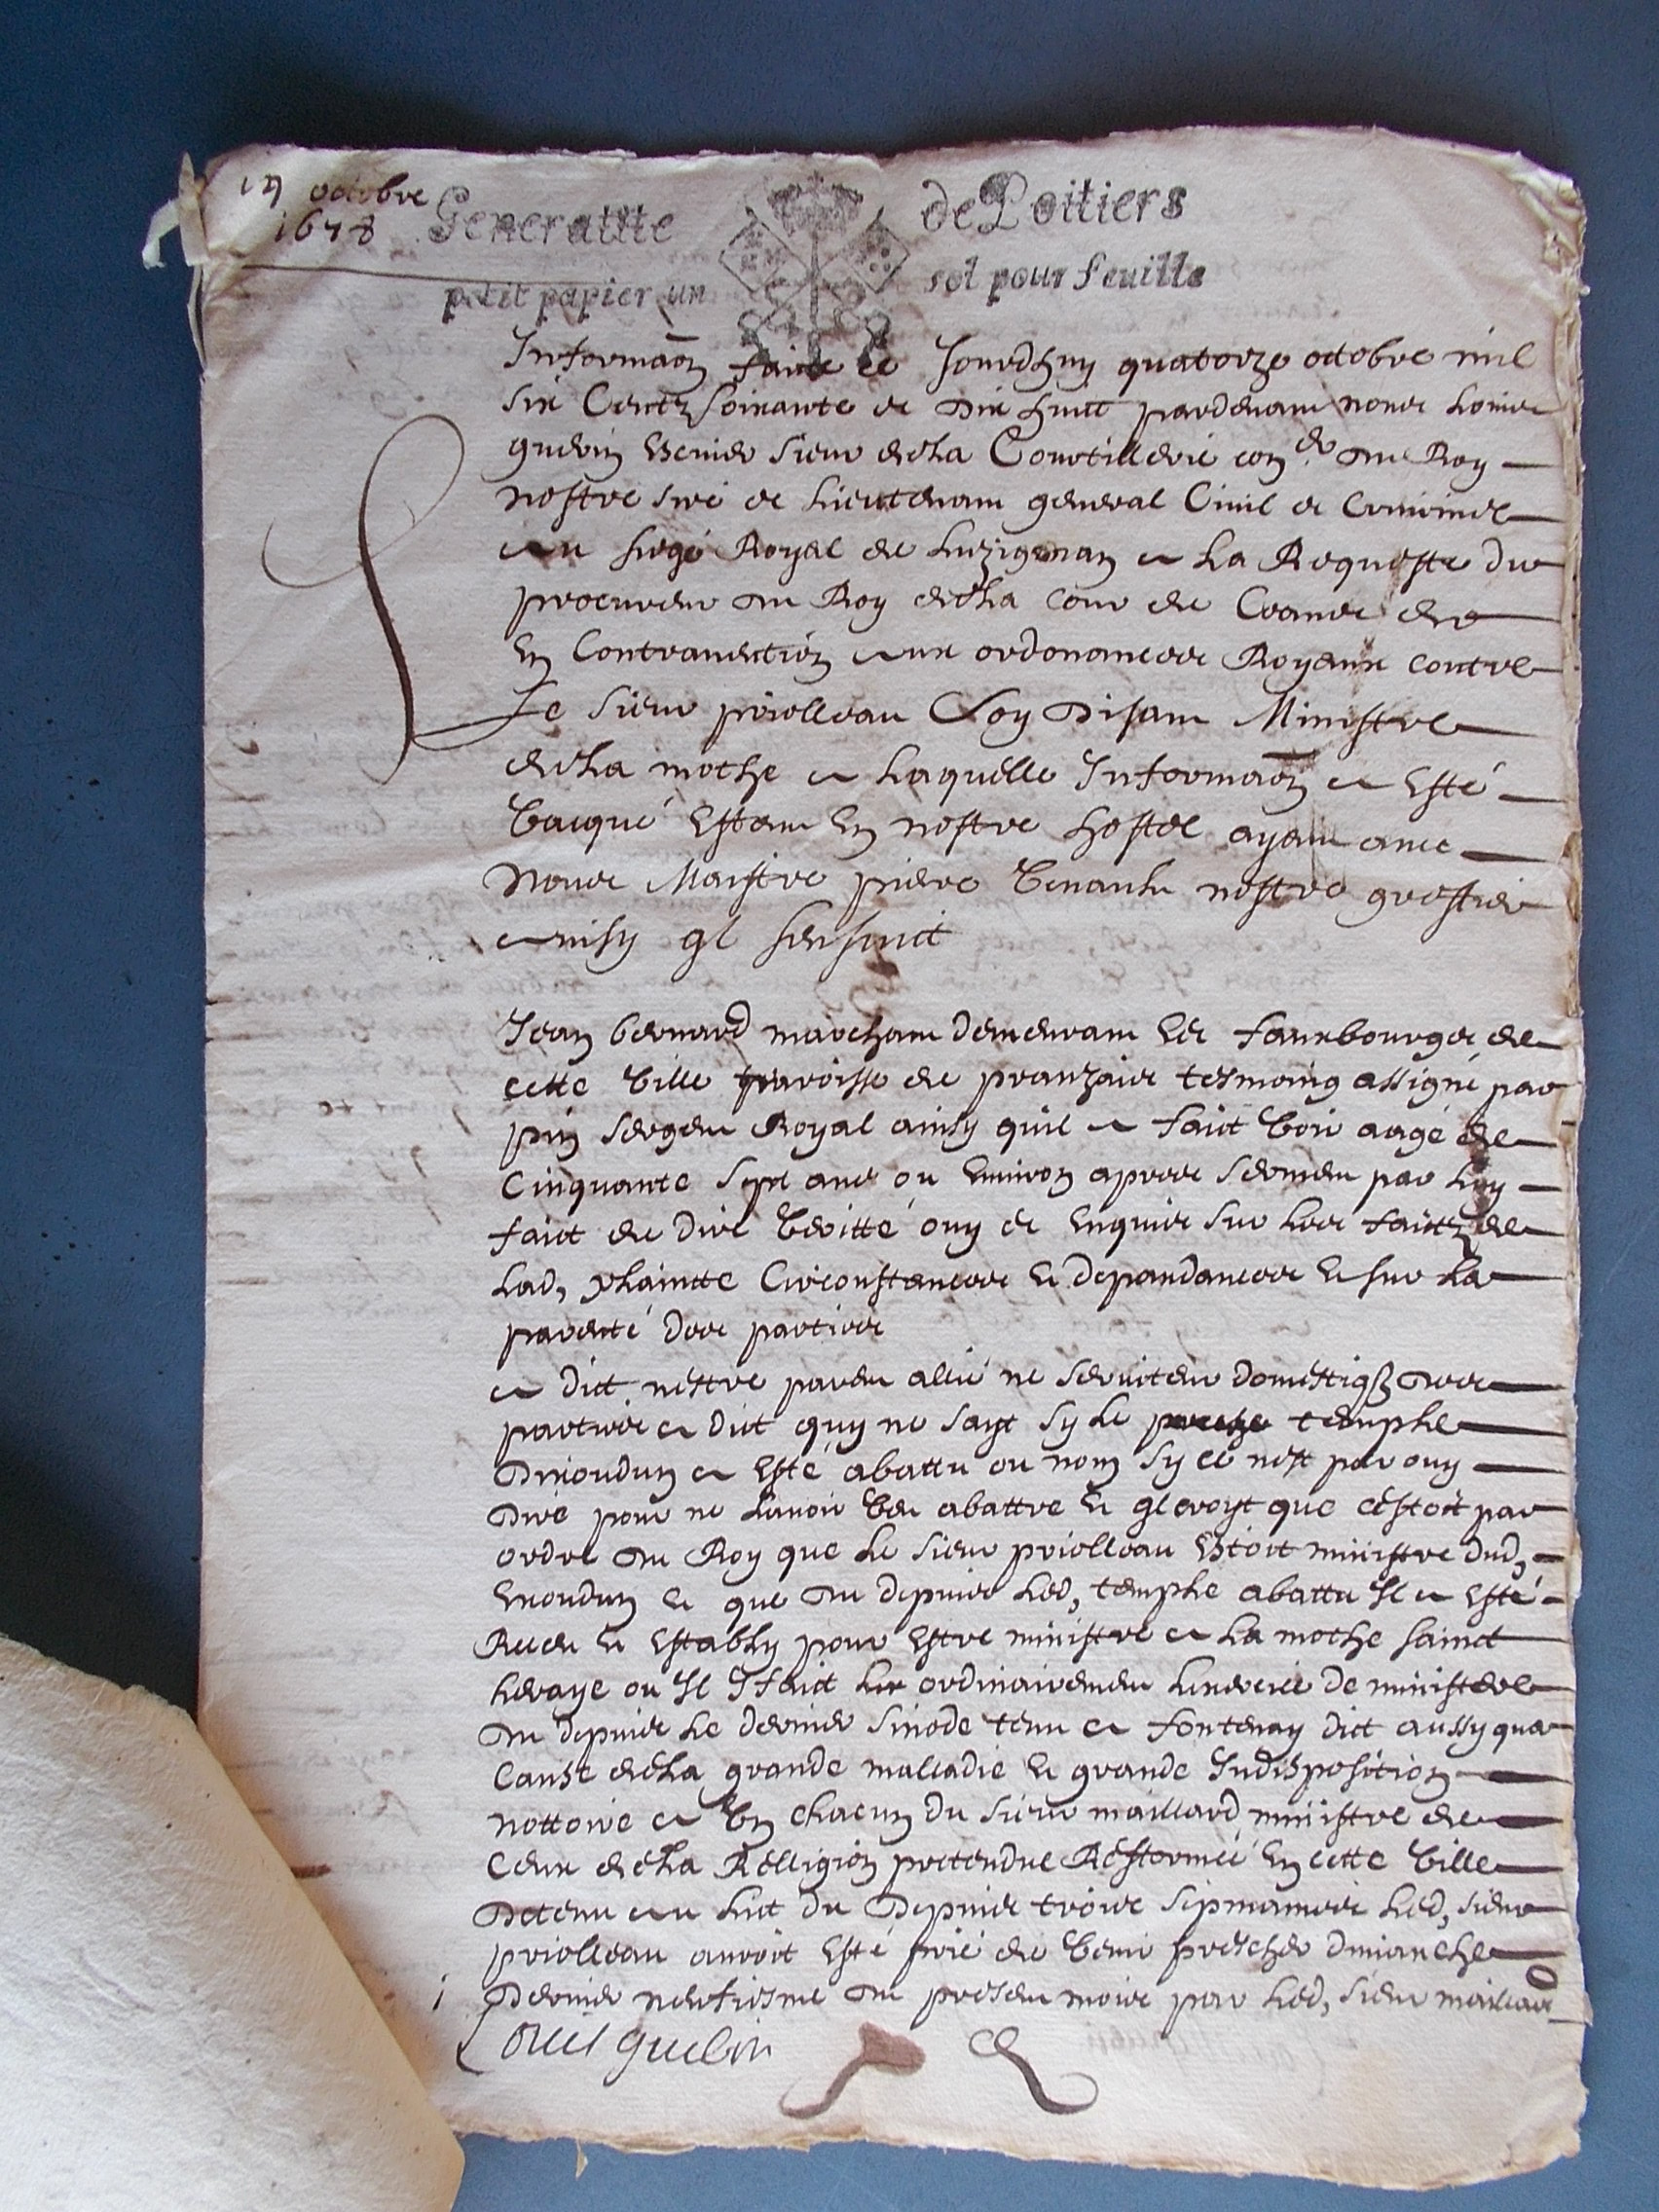 14 octobre
1678
Generalite de Poitiers
petit papier un sol pour feuille
Informaon faicte ce Jourdhuy quatorze octobre mil
six Centz soixante et dix huict pardevant nous Louis
guerin Escuier sieur de la Courtillerie con.er du Roy
nostre sire et Lieutenant general Civil et Criminel
au siege Royal de Luzignan a La Requeste du
procureur du Roy de la cour de Ceans
En Contravention aux ordonances Royaux contre
Le sieur priolleau soy disant Ministre
de La mothe a Laquelle Informaon a Esté
vacqué Estant En nostre hostel ayant avec
Nous Maistre piere nostre greffier
ainsy quil sensuict
Jean bernard marchant demeurant Es fauxbourgs de
cette ville parroisse de pranzais tesmoing assigné par
pin sergent Royal ainsy quil a faict voir aagé de
Cinquante sept ans ou Environ apres serment par Luy
faict de dire veritté ouy et Enquis sur Les faictz de
Lad, plaintte Circonstances et depandances et sur La
parenté des parties
a dict nestre parent allié ne serviteur domestiq des
parties a dict quy ne sayt sy Le temple
Dexoudun a Esté abattu ou nom sy ce nest par ouy
dire pour ne Lavoir veu abattre et quil croyt que cestoit par
ordre du Roy que Le sieur priolleau Estoit ministre dud,
Exoudun et que du depuis Led, temple abattu Il a Esté
Receu et Estably pour Estre ministre a La mothe sainct
heraye ou Il Y faict ordinairement Lexercice de ministere
du depuis Le dernier sinode tenu a fontenay dict aussy qua
Cause de La grande malladie et grande Indisposition
nottoire a Un chacun du sieur maillard ministre de
Ceux de La Relligion pretendue Refformée En cette ville
Detenu au Lict du Depuis trois sepmaines Led, sieur
priolleau auroit Esté prié de venir prescher dimanche
Dernier neufiesme du present mois par Led, sieur maillard
Louis guerin